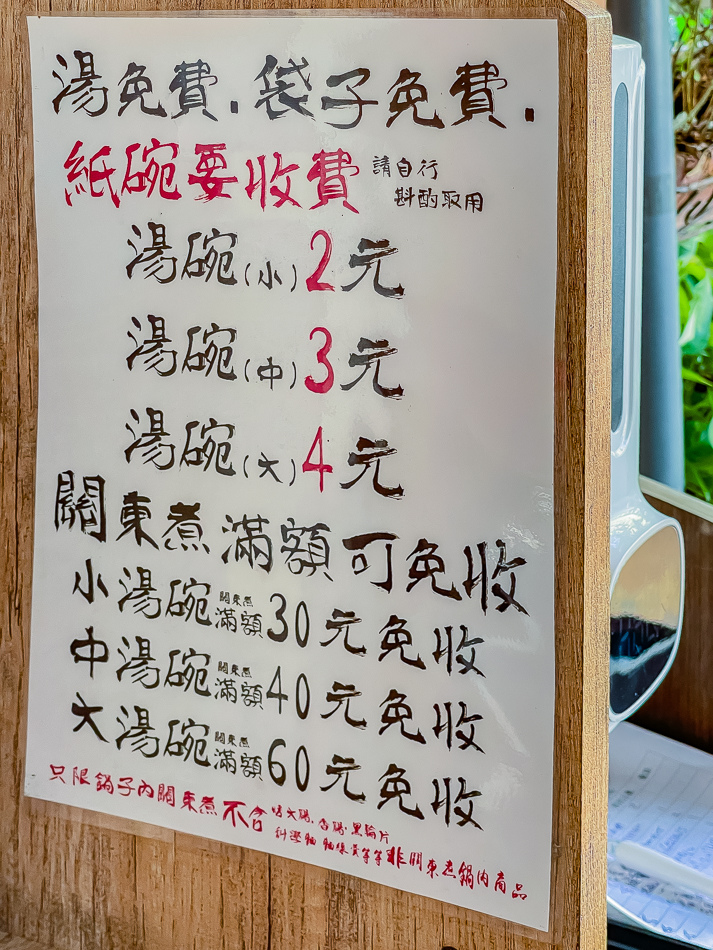 湯免費.袋子免費.
紙碗要收費 請自行
斟酌取用
湯碗(小)2元
湯碗(中)3元
湯碗(大)4元
關東煮滿額可免收
小湯碗關東煮滿額30元免收
中湯碗關東煮滿額40元免收
大湯碗關東煮滿額60元免收
只限鍋子內關東煮不含 大腸.香腸.黑輪片
科學麵 等等非關東煮鍋內商品